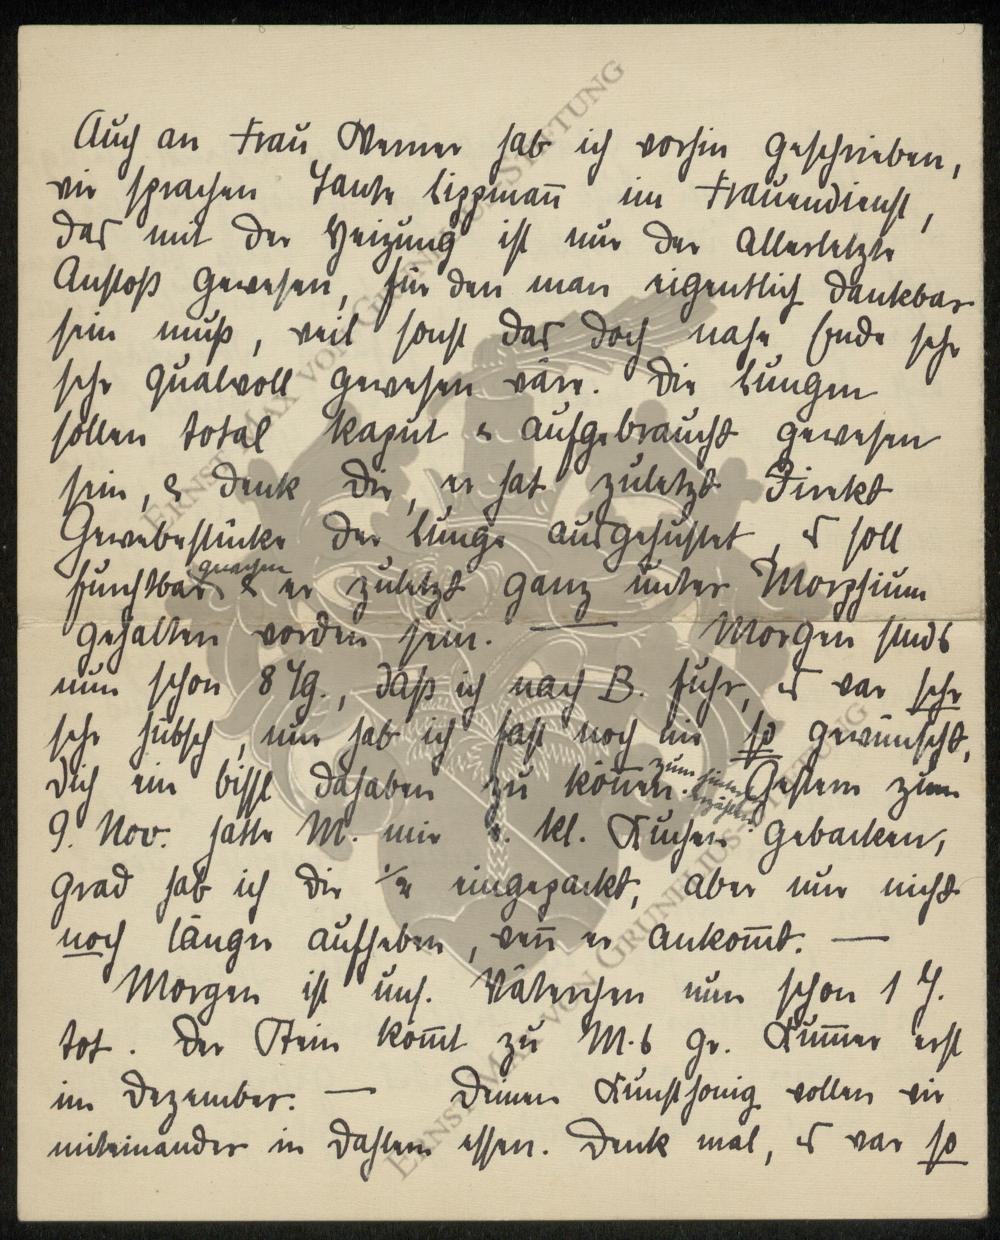 Auch an Frau Werner hab ich vorhin geschrieben,
wir sprachen Tante Lippmañ im Frauendienst,
das mit der Heizung ist nur der allerletzte
Anstoß gewesen, für den man eigentlich dankbar
sein muß, weil sonst das doch nahe Ende sehr
sehr qualvoll gewesen wäre. Die Lungen
sollen total kaput & aufgebraucht gewesen
sein, & denk Dir, er hat zuletzt direkt
Gewebestücke der Lunge ausgehustet, es soll
furchtbar gewesen & er zuletzt ganz unter Morphium
gehalten worden sein. — Morgen sinds
nun schon 8 Tg., daß ich nach B. fuhr, es war sehr
sehr hübsch, nur hab ich fast noch nie so gewünscht,
Dich ein bissl dahaben zu köñen zum erzählen. Gestern zum
9. Nov. hatte M. mir e. kl. Kuchen gebacken,
grad hab ich Dir 1/2 eingepackt, aber nur nicht
noch länger aufheben, weñ er ankom̄t. —
Morgen ist uns. Väterchen nun schon 1 J.
tot. Der Stein kom̄t zu M.s gr. Kum̄er erst
im Dezember. — Deinen Kunsthonig wollen wir
miteinander in Dahlen essen. Denk mal, es war so
ERNST MAX VON GRUNELIUS-STIFTUNG
ERNST MAX VON GRUNELIUS-STIFTUNG